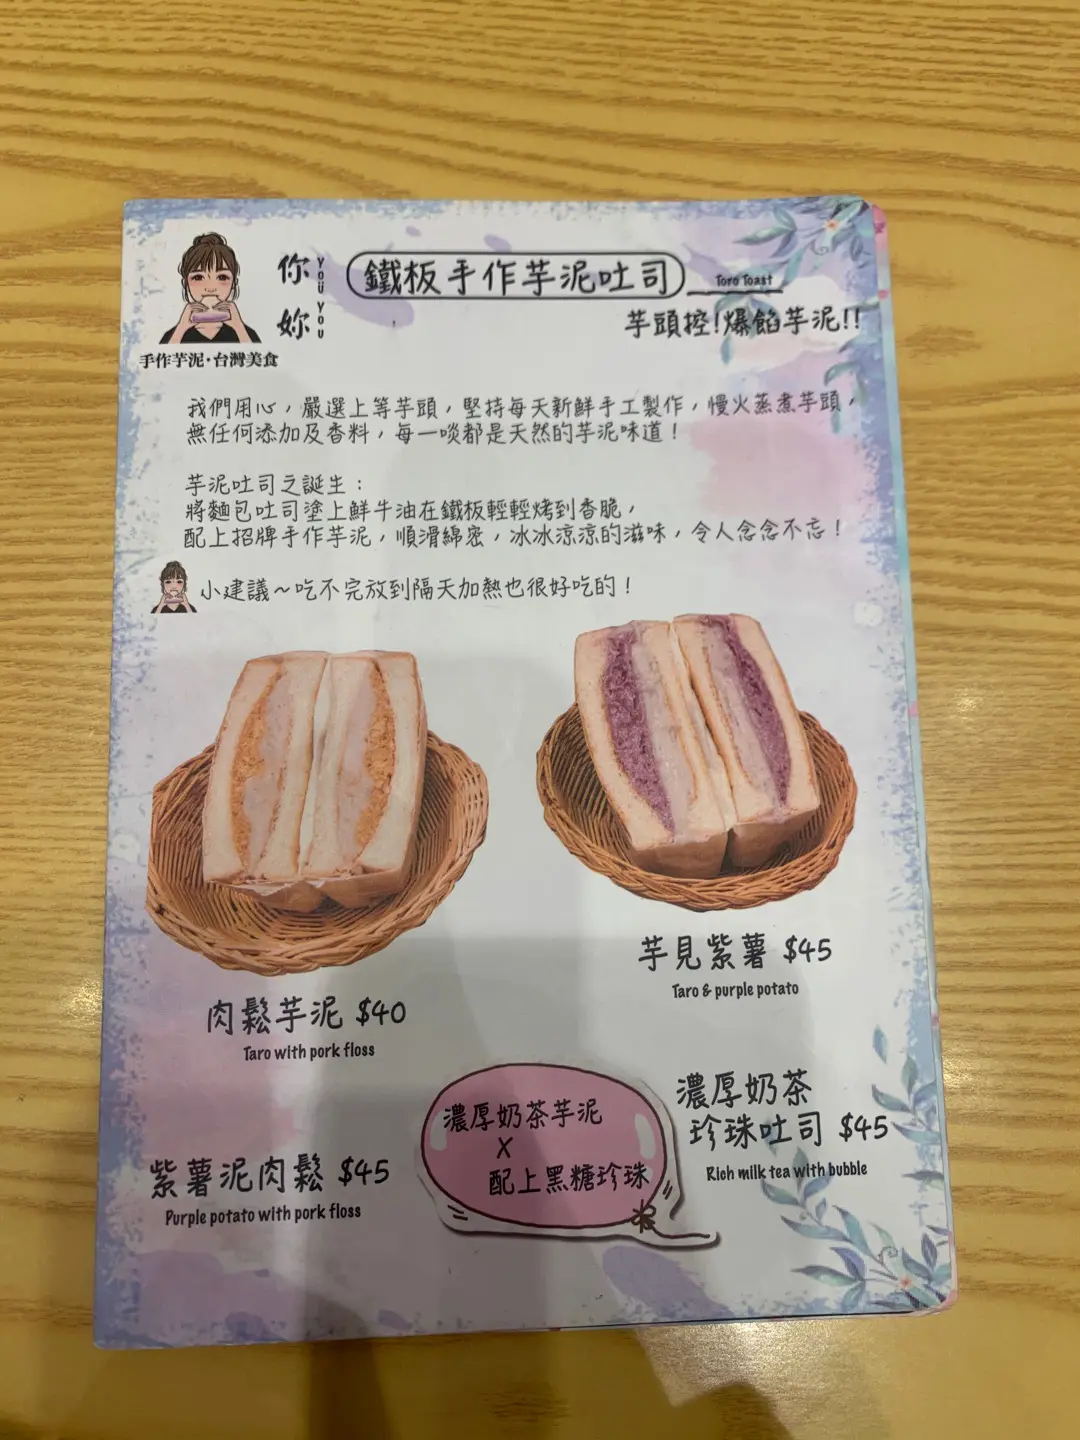 你妳
YOU YOU
鐵板手作芋泥吐司 Toro Toast
手作芋泥·台灣美食
芋頭控!爆餡芋泥!!
我們用心，嚴選上等芋頭，堅持每天新鮮手工製作，慢火蒸煮芋頭，
無任何添加及香料，每一啖都是天然的芋泥味道！
芋泥吐司之誕生：
將麵包吐司塗上鮮牛油在鐵板輕輕烤到香脆，
配上招牌手作芋泥，順滑綿密，冰冰涼涼的滋味，令人念念不忘！
小建議～吃不完放到隔天加熱也很好吃的！
肉鬆芋泥 $40
Taro with pork floss
芋見紫薯 $45
Taro & purple potato
紫薯泥肉鬆 $45
Purple potato with pork floss
濃厚奶茶芋泥
X
配上黑糖珍珠
濃厚奶茶
珍珠吐司 $45
Rich milk tea with bubble